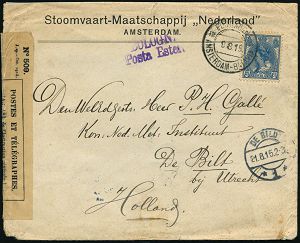 Stoomvaart-Maatschappij „Nederland”
AMSTERDAM.
BOLOGNA
Posta Estera
AMSTERDAM
Den WelEdgestr. Heer P. H. Gallé
Kon. Ned. Met. Instituut
De Bilt
bij Utrecht
Holland
DE BILT
21.8.16.2-3
1
No 509.
POSTES ET TÉLÉGRAPHES